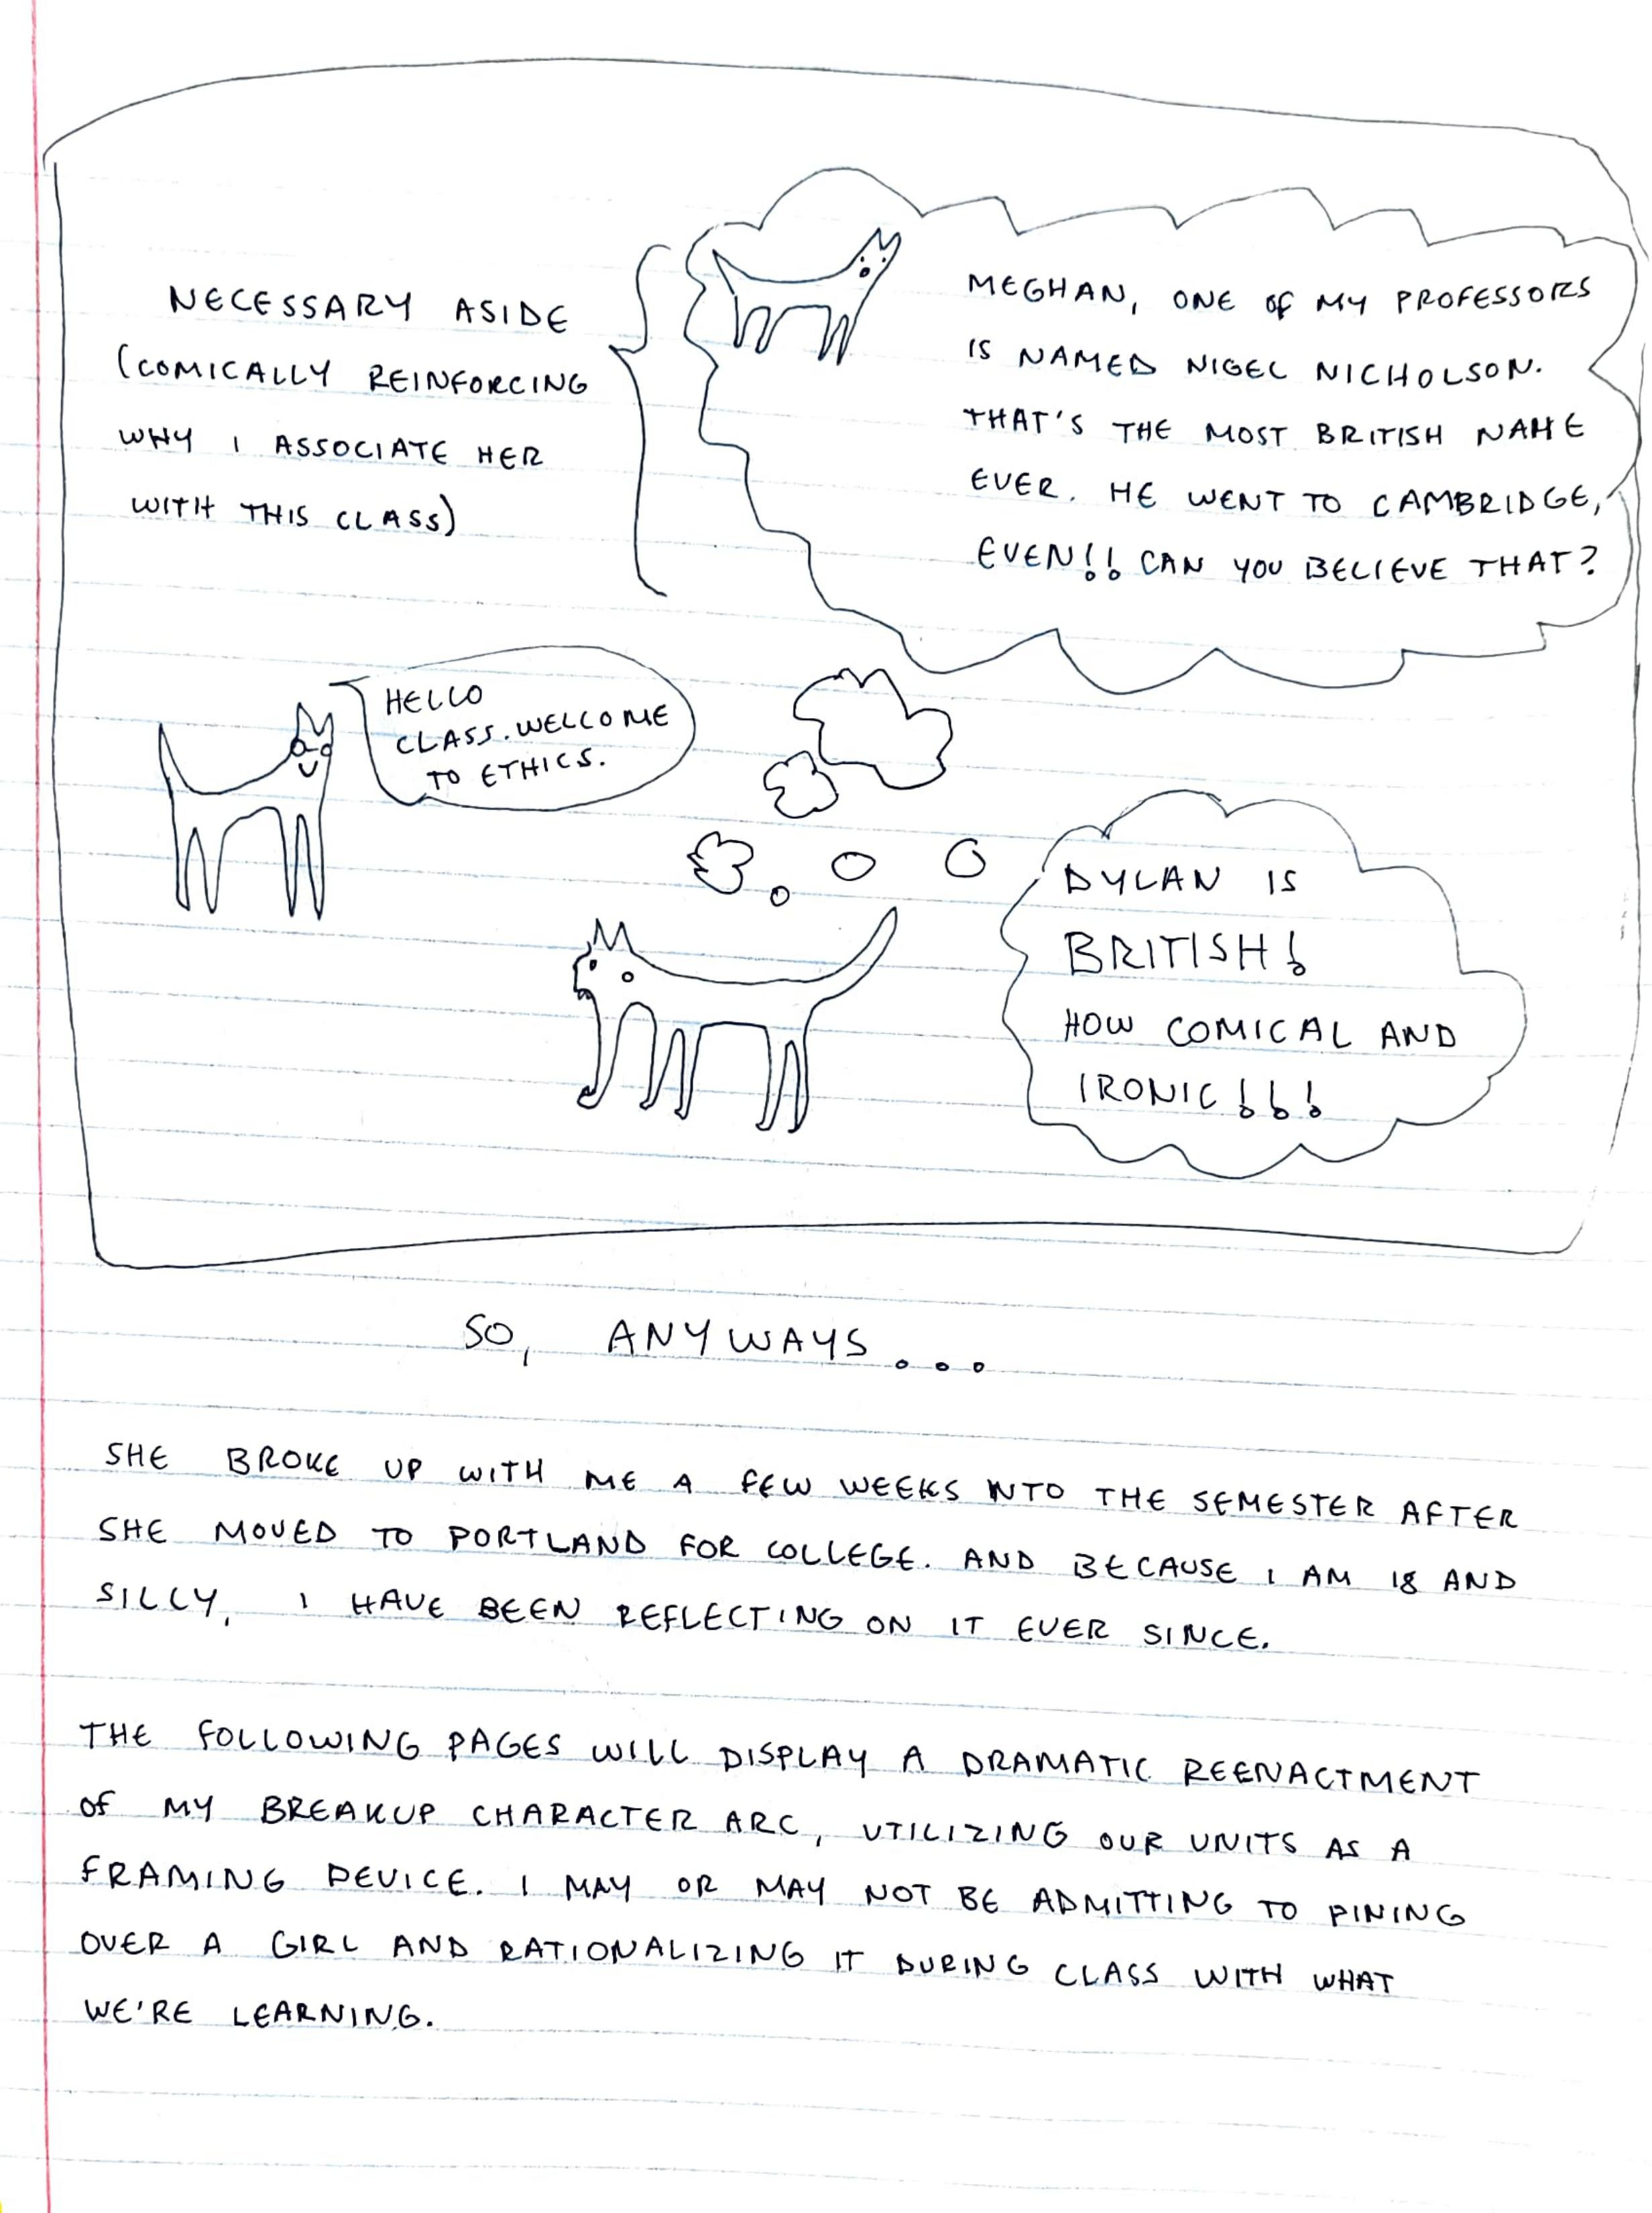 NECESSARY ASIDE
(COMICALLY REINFORCING
WHY I ASSOCIATE HER
WITH THIS CLASS)
MEGHAN, ONE OF MY PROFESSORS
IS NAMED NIGEL NICHOLSON.
THAT'S THE MOST BRITISH NAME
EVER. HE WENT TO CAMBRIDGE,
EVEN!! CAN YOU BELIEVE THAT?
HELLO
CLASS. WELCOME
TO ETHICS.
DYLAN IS
BRITISH!
HOW COMICAL AND
IRONIC!!!
SO, ANYWAYS...
SHE BROKE UP WITH ME A FEW WEEKS INTO THE SEMESTER AFTER
SHE MOVED TO PORTLAND FOR COLLEGE. AND BECAUSE I AM 18 AND
SILLY, I HAVE BEEN REFLECTING ON IT EVER SINCE.
THE FOLLOWING PAGES WILL DISPLAY A DRAMATIC REENACTMENT
OF MY BREAKUP CHARACTER ARC, UTILIZING OUR UNITS AS A
FRAMING DEVICE. I MAY OR MAY NOT BE ADMITTING TO PINING
OVER A GIRL AND RATIONALIZING IT DURING CLASS WITH WHAT
WE'RE LEARNING.